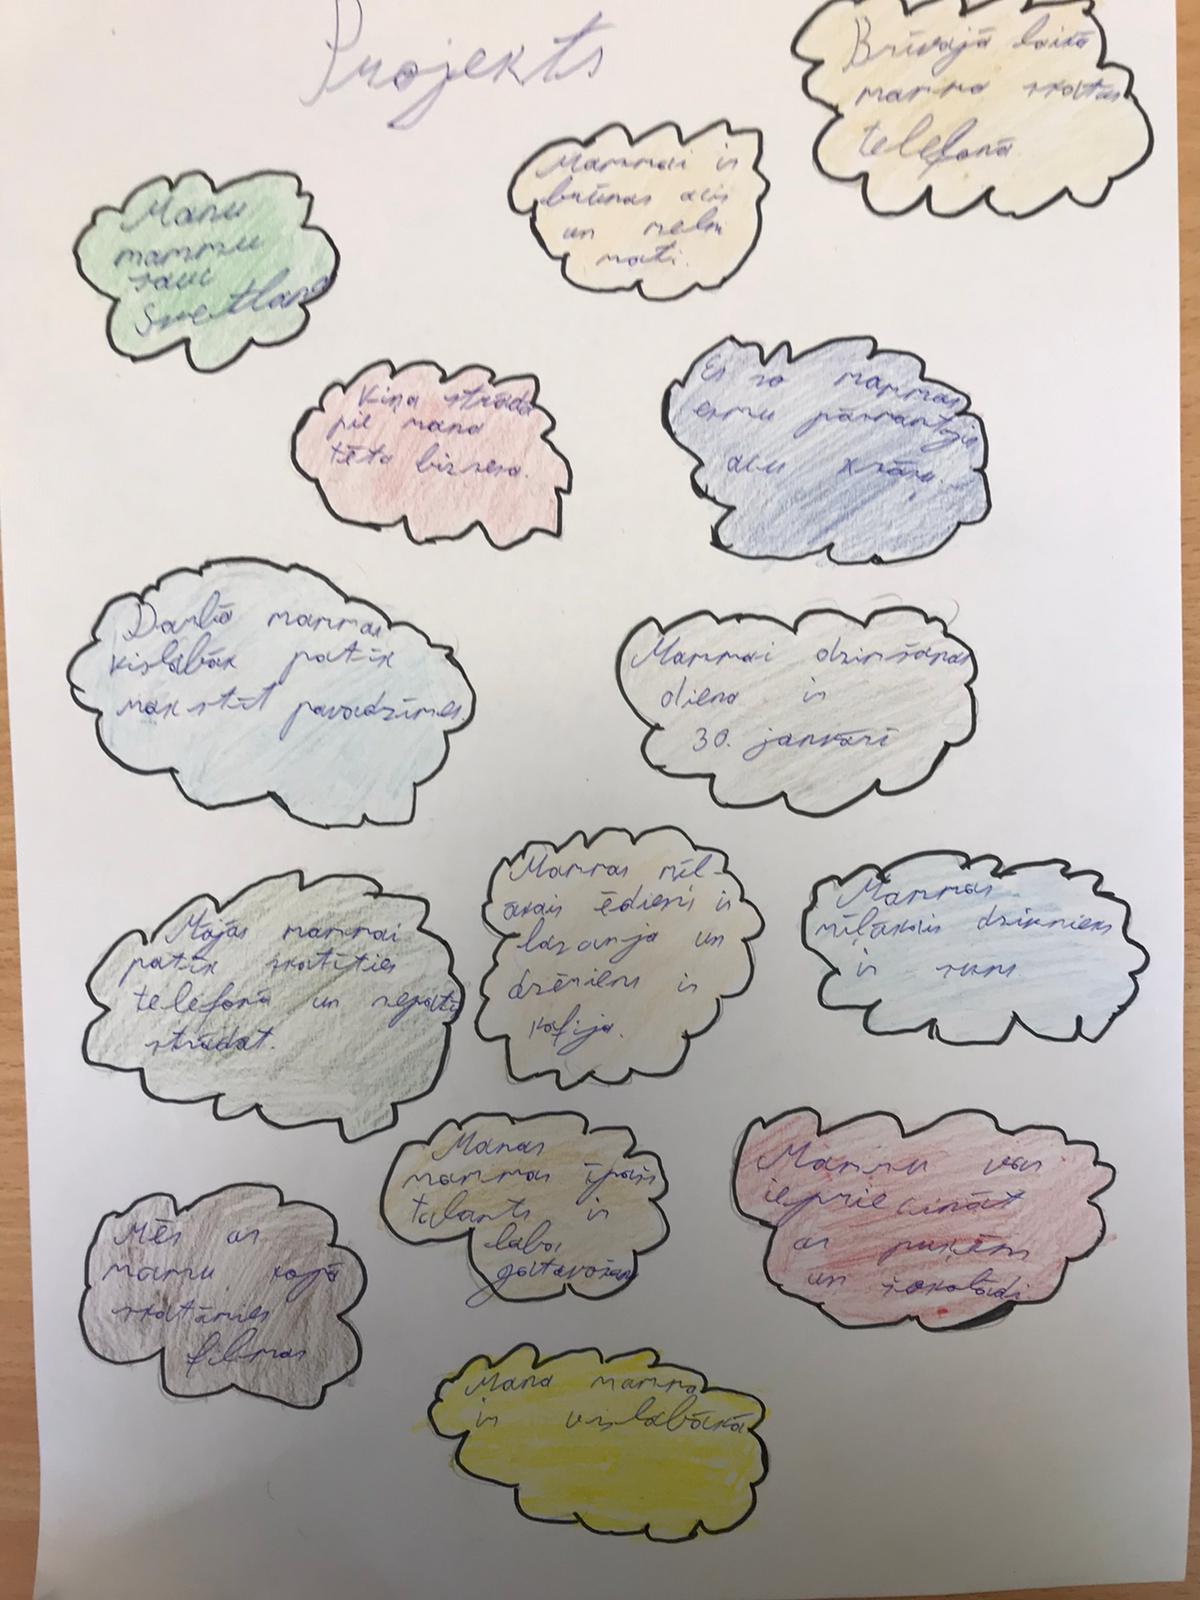 Projekts
Brīvajā laikā
mamma skatās
telefonā.
Mammai ir
brūnas acis
un melni
mati.
Manu
mammu
sauc
Svetlana
Viņa strādā
pie mana
tēta biznesa.
Es no mammas
esmu pārmantojis
acu krāsu.
Darbā mammai
vislabāk patīk
makstīt pavadzīmes.
Mammai dzimšanas
diena ir
30. janvārī
Mājās mammai
patīk skatīties
telefonā un nepatīk
strādāt.
Mammas mīl-
ākais ēdiens ir
lazanja un
dzēriens ir
kafija.
Mammas
mīļākais dzīvnieks
ir suns
Manas
mammas īpašs
talants ir
laba
gatavošana
Mammu var
iepriecināt
ar puķēm
un šokolādi
Mēs ar
mammu kopā
skatāmies
filmas
Mana mamma
ir vislabākā